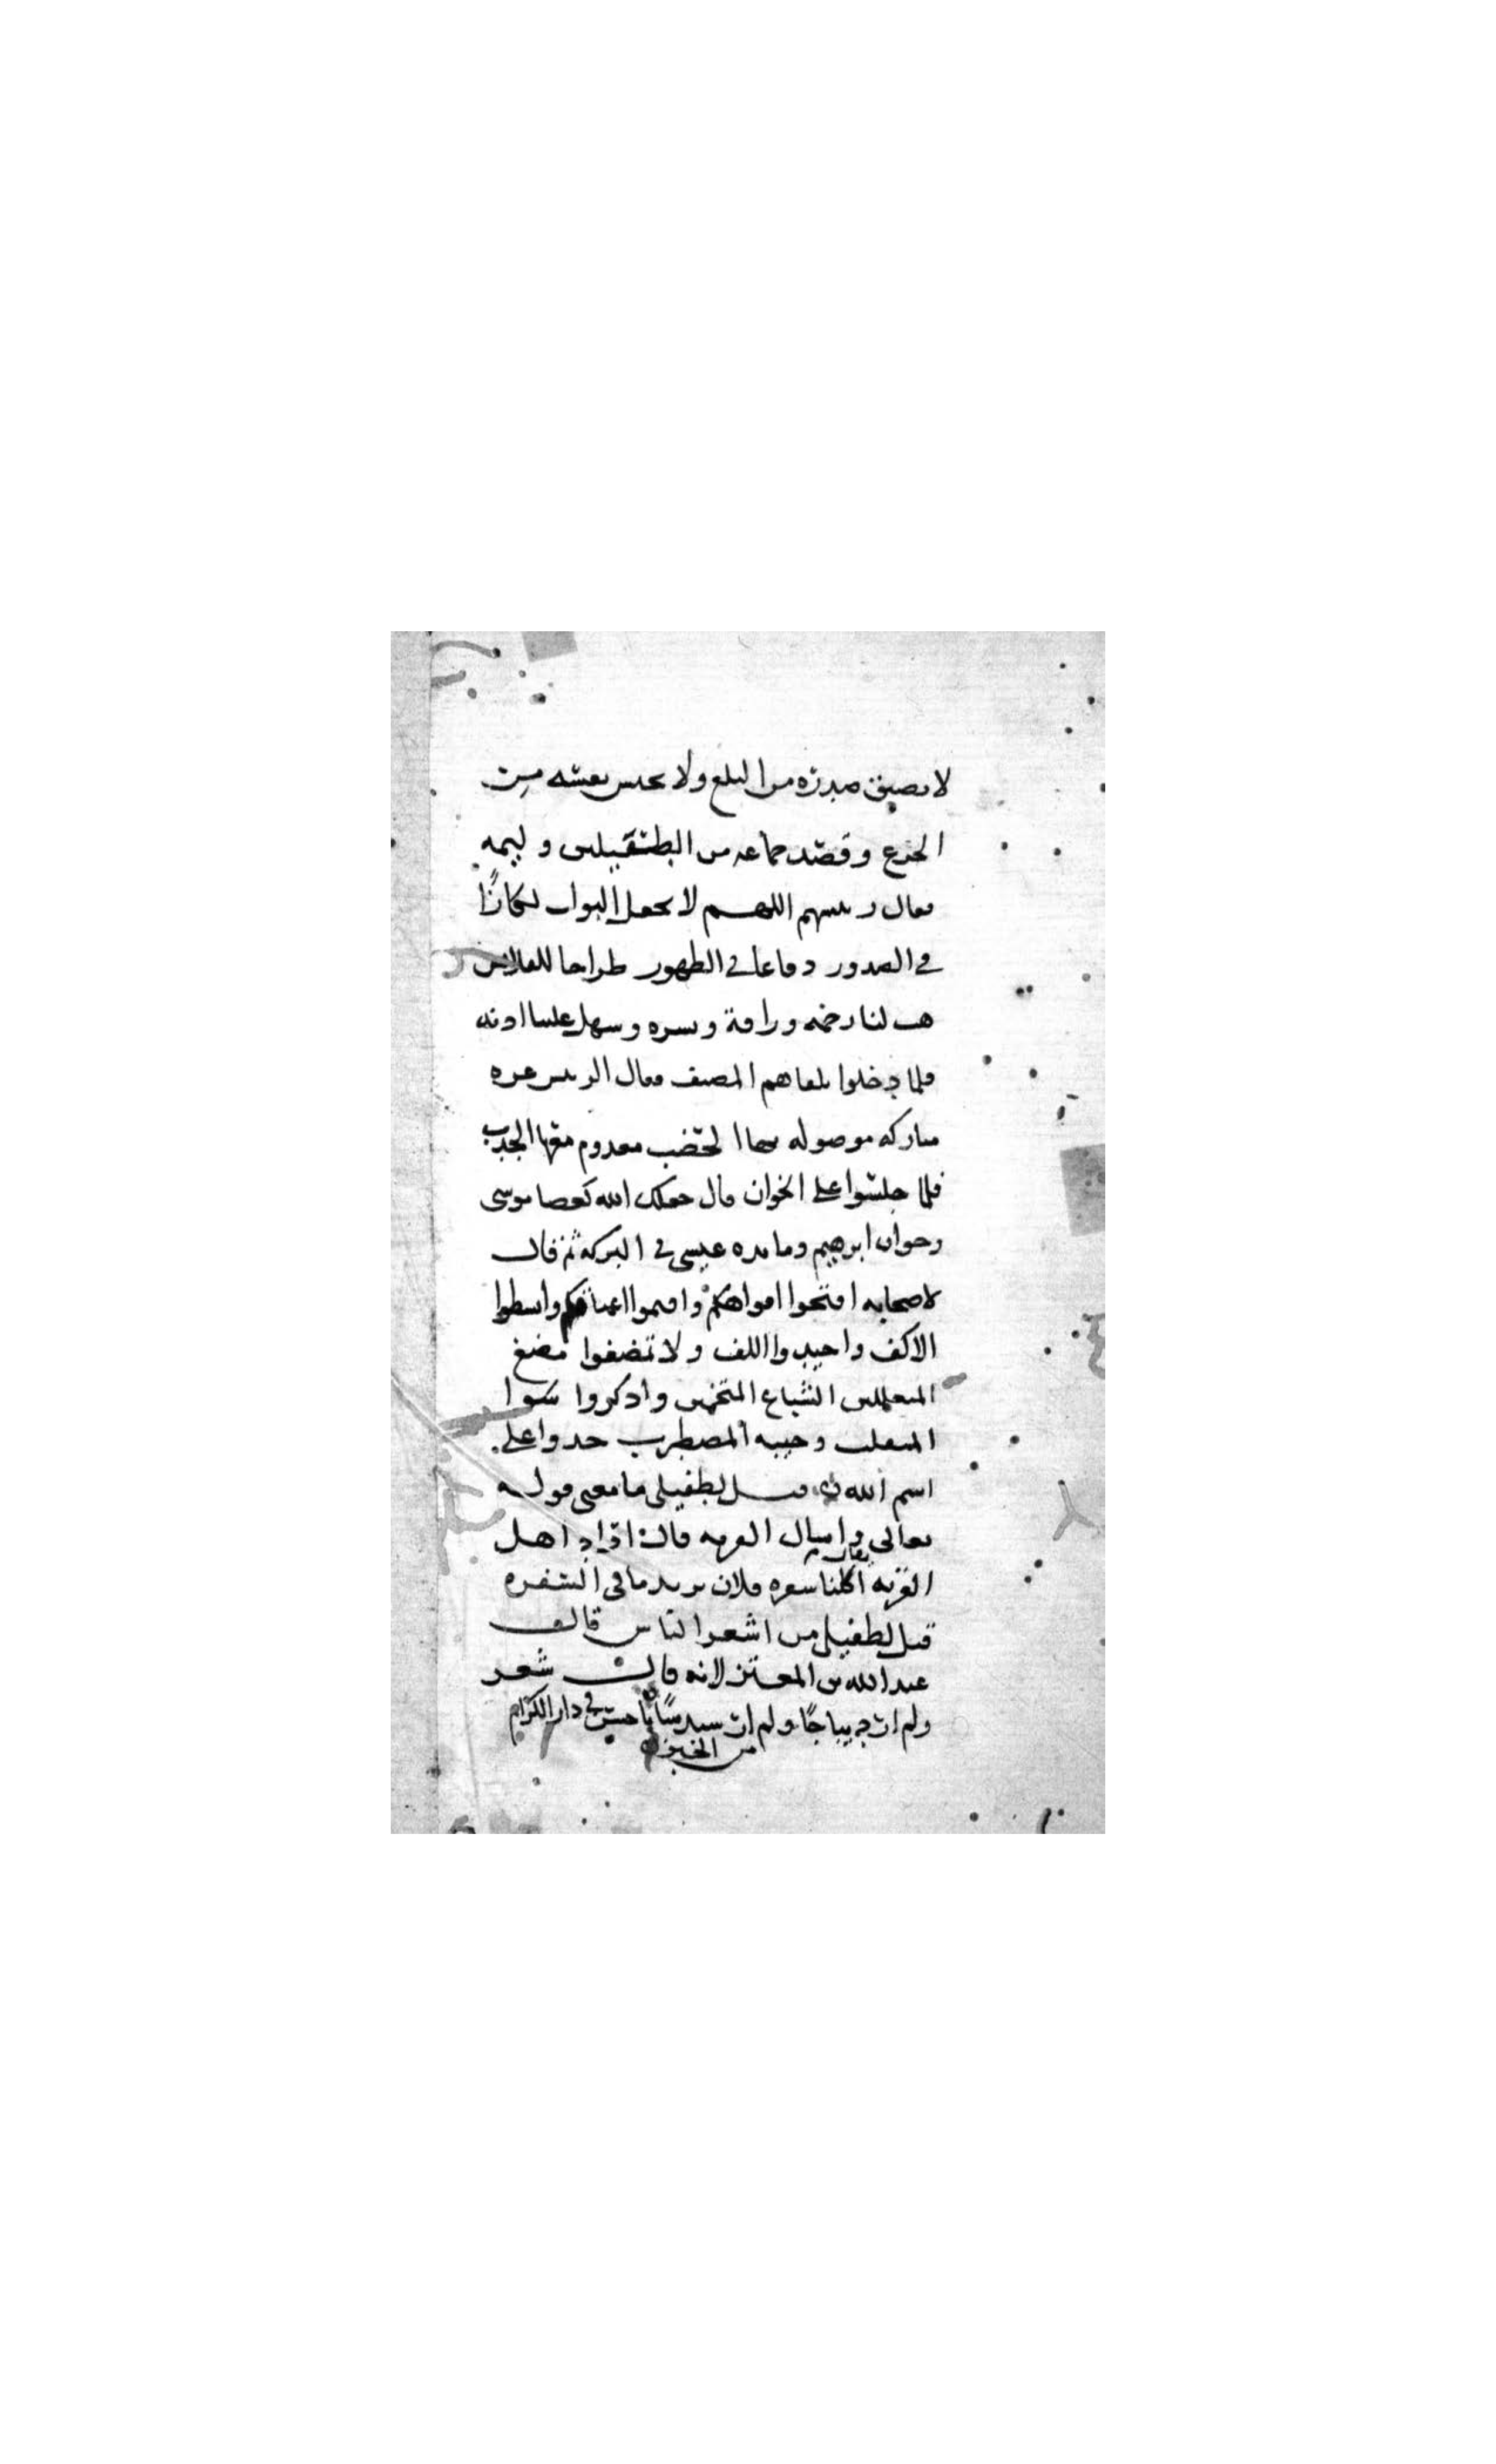 لا يضيق صدره من البلع ولا يحبس نفسه من
الجزع وقصد جماعه من الطفيليين وليمه
فقال رئيسهم اللهم لا تجعل البواب لكازًا
في الصدور دفاعا في الظهور طراحا للقلانس
هب لنا رحمه ورافة ويسره وسهل علينا اذنه
فلما دخلوا تلقاهم المضيف فقال الرئيس غره
مباركه موصوله بها الخصب معدوم معها الجدب
فلما جلسوا على الخوان قال جعلك الله كعصا موسى
وخوان ابرهيم ومائده عيسى في البركه ثم قال
لاصحابه افتحوا افواهكم واقيموا اعناقكم وابسطوا
الاكف واجيدوا اللف ولا تمضغوا مضغ
المتعللين الشباع المتخمين واذكروا سوا
المنقلب وخيبه المضطرب خدوا على
اسم الله قيل لطفيلي ما معنى قوله
تعالى واسال القريه قال اراد اهل
القريه كما يقال اكلنا سفره فلان يريد ما في السفره
قيل لطفيلي من اشعر الناس قال
عبد الله بن المعتز لانه قال شعر
ولم ار ديباجًا ولم ار سندسًا باحسن في دار الكرام
من الخبز